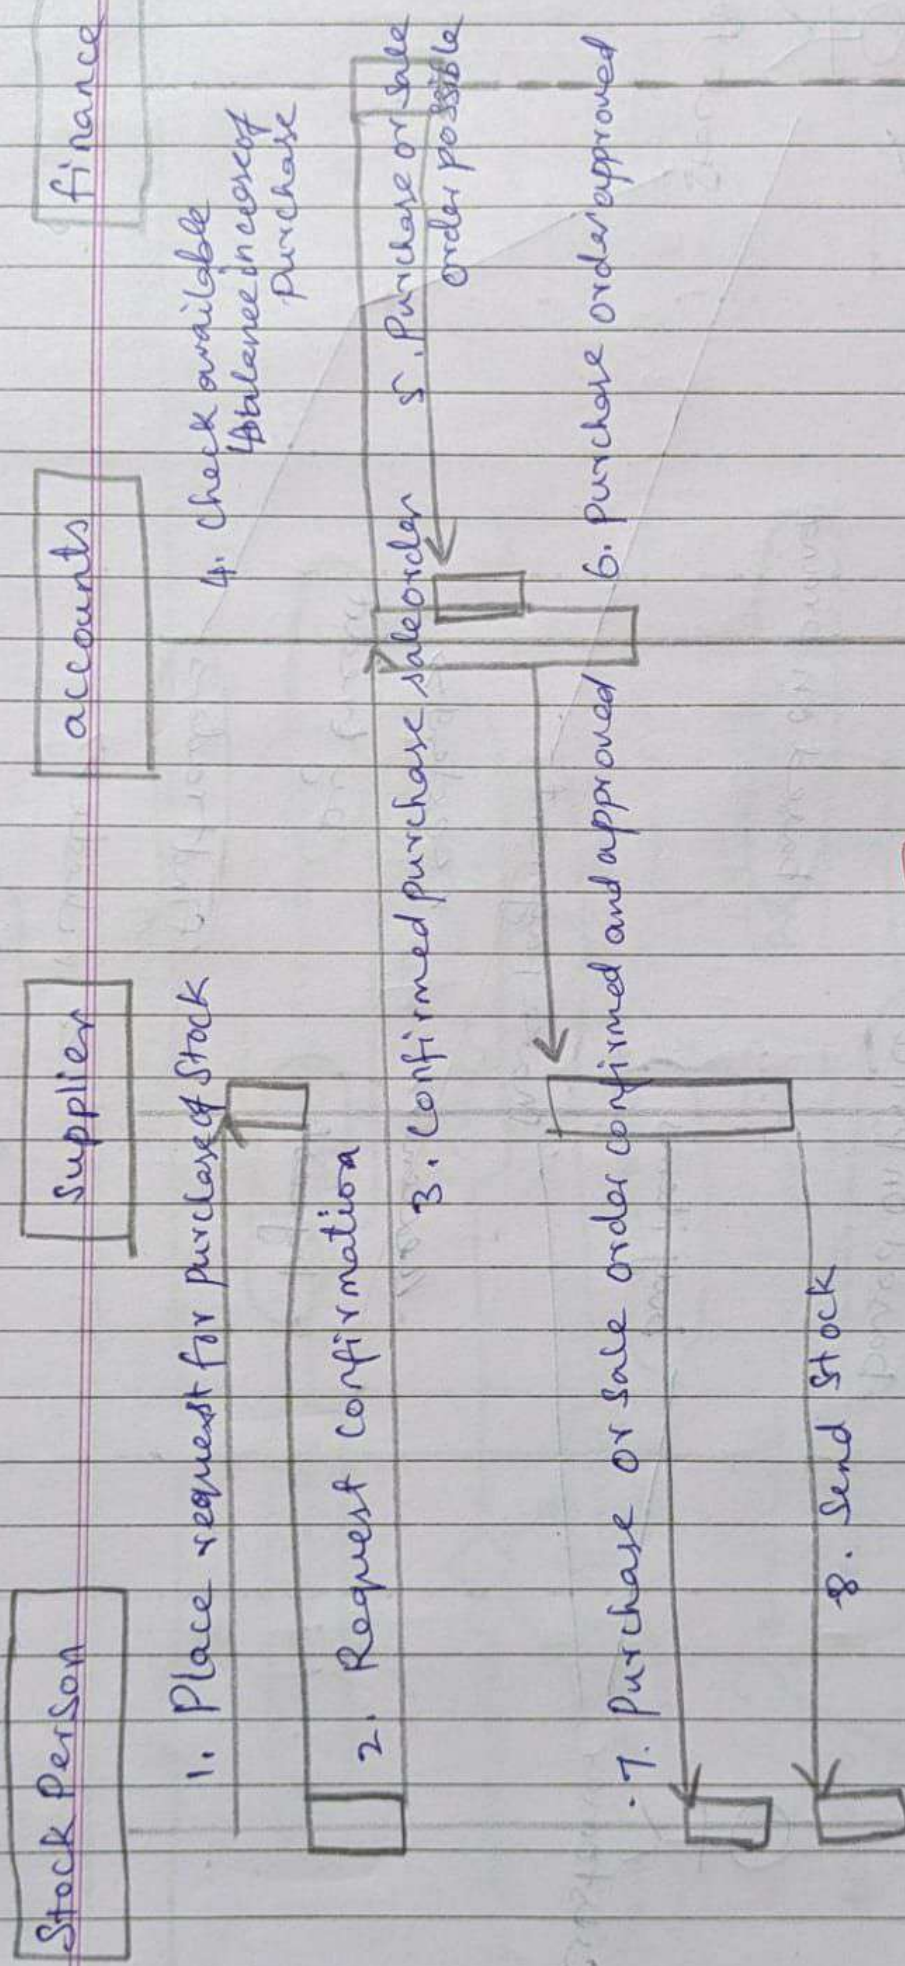 Stock Person
Supplier
accounts
finance
1. Place request for purchase of Stock
2. Request Confirmation
3. Confirmed purchase sale order
4. Check available
balance in case of
purchase
5. Purchase or Sale
order possible
6. Purchase order approved
7. Purchase or Sale order confirmed and approved
8. Send Stock